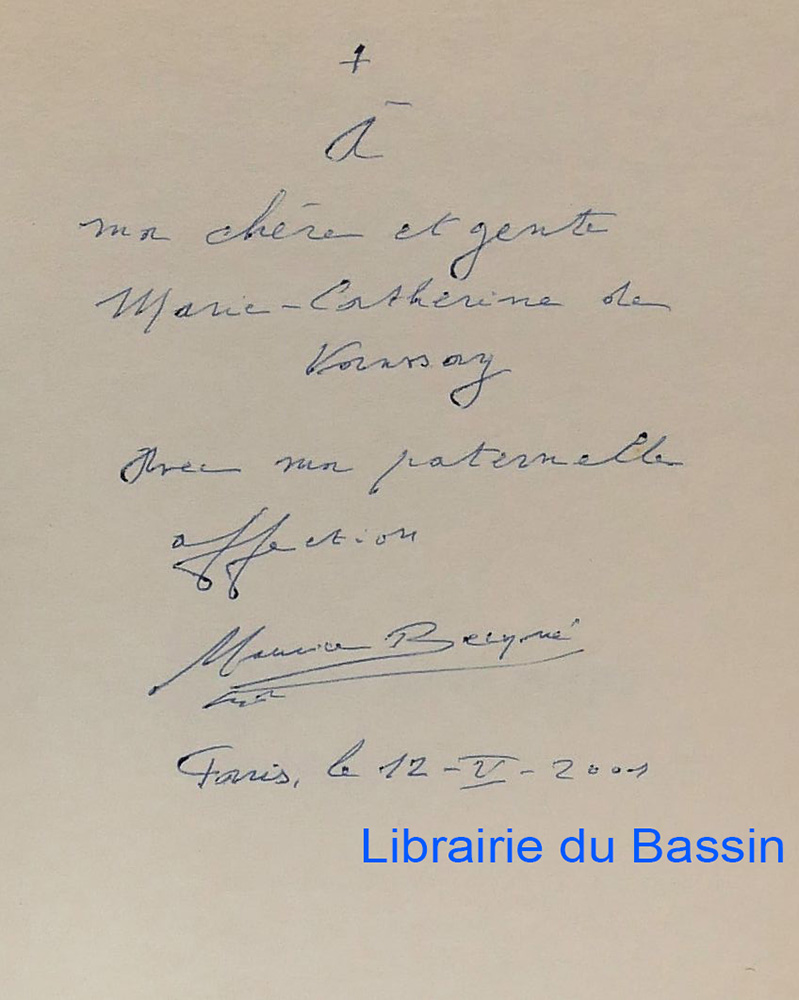 +
À
ma chère et gente
Marie-Catherine de
Avec ma paternelle
affection
Maurice Becqué
Paris, le 12-V-2001
Librairie du Bassin